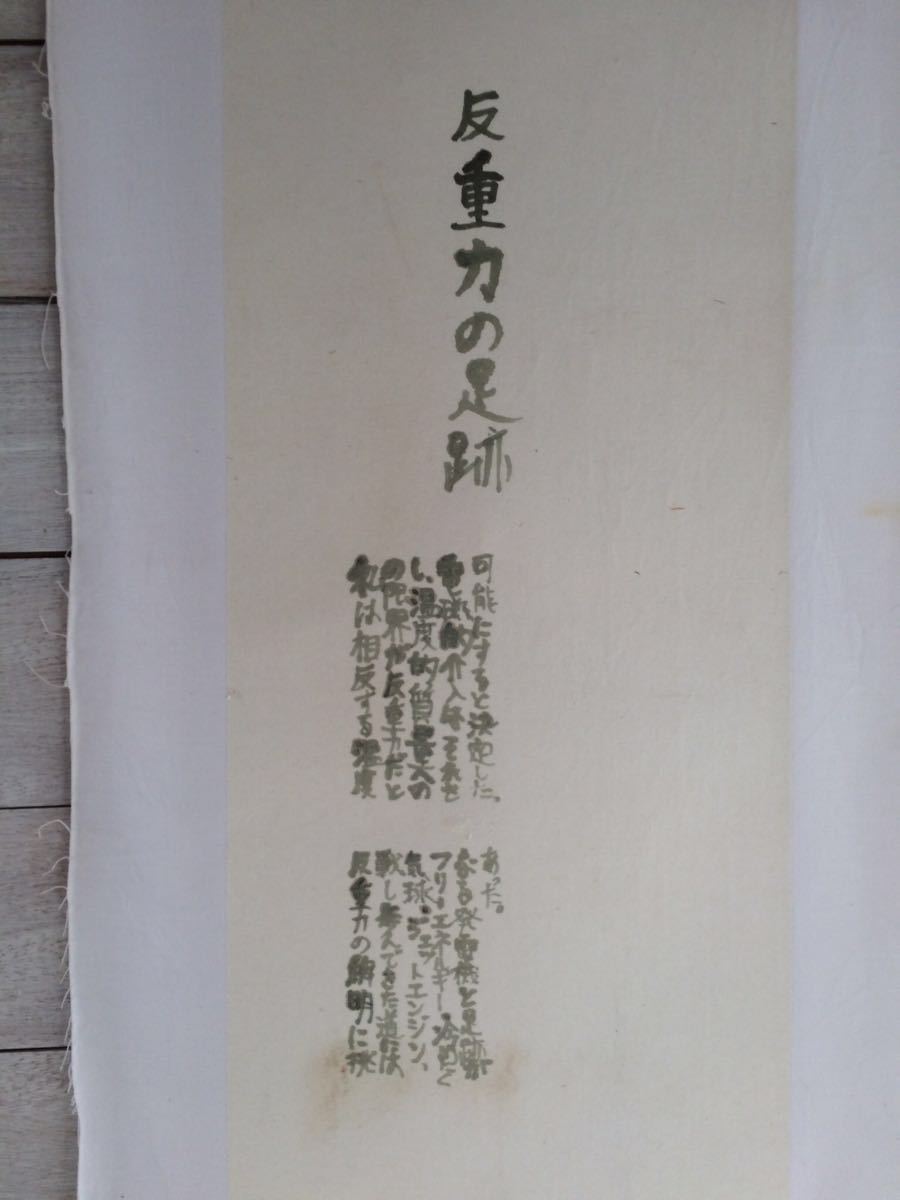 反重力の足跡
私は相反する温度
の限界が反重力だと
し、温度的質量大の
電磁的介入はそれを
可能にすると決定した、
反重力の解明に挑
戦し歩んできた道には
気球・ジェットエンジン、
フリーエネルギー、冷めたく
なる発電機と足跡が
あった。